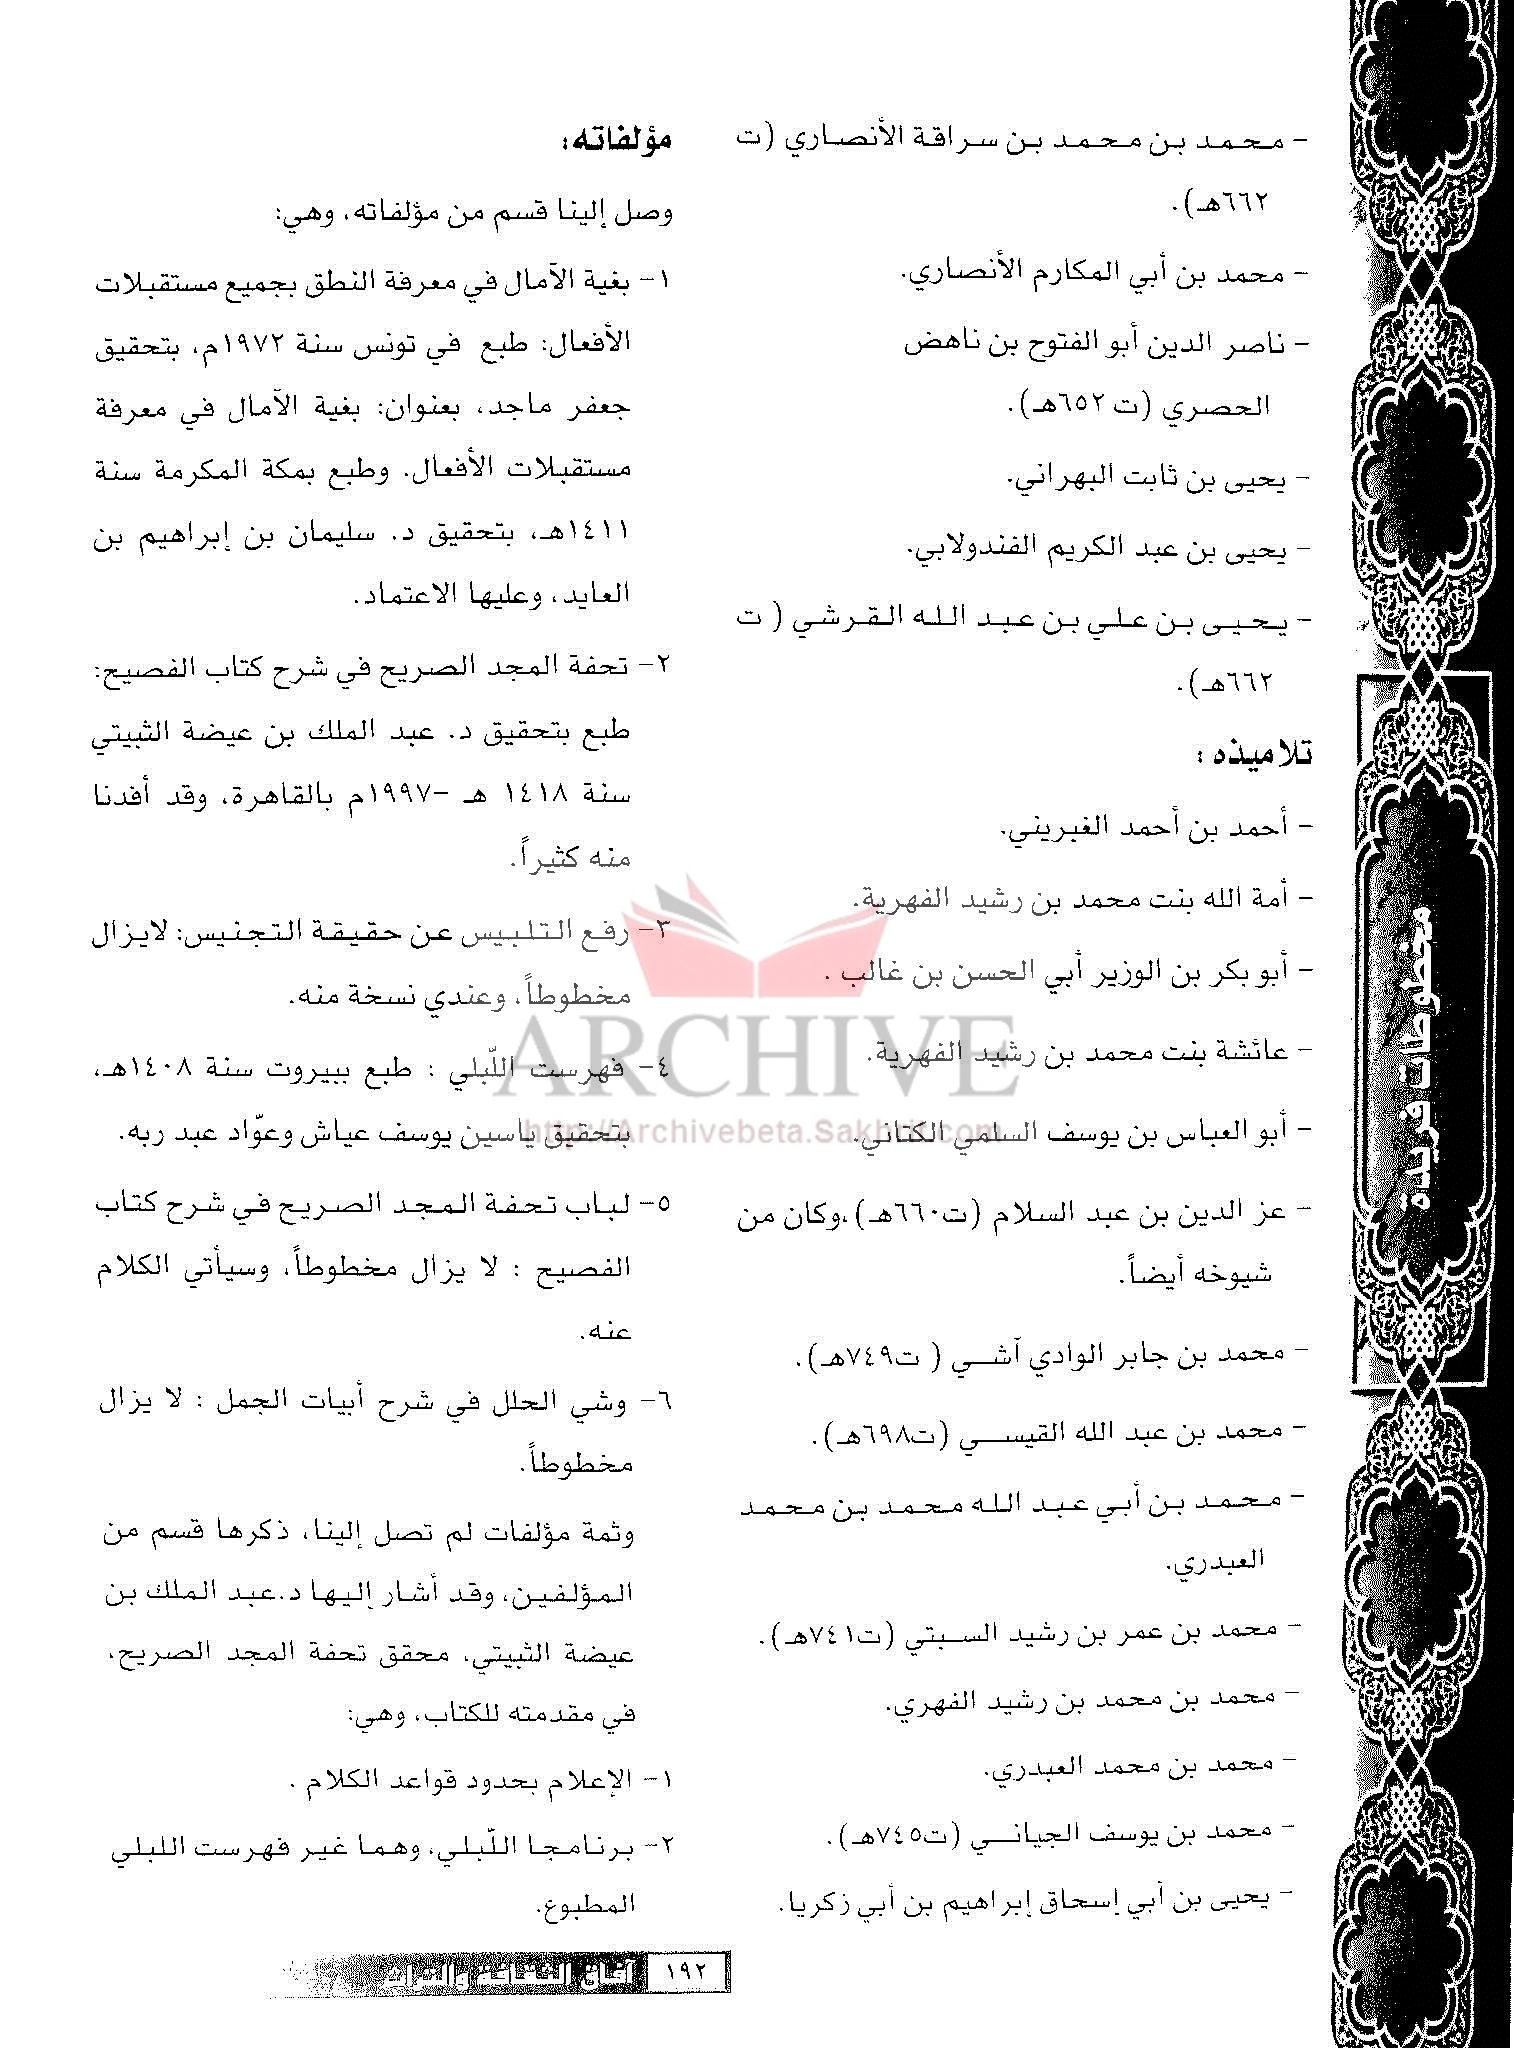 - محمد بن محمد بن سراقة الأنصاري (ت
٦٦٢هـ).
- محمد بن أبي المكارم الأنصاري.
- ناصر الدين أبو الفتوح بن ناهض
الحصري (ت ٦٥٢هـ).
- يحيى بن ثابت البهراني.
- يحيى بن عبد الكريم الفندولابي.
- يحيى بن علي بن عبد الله القرشي ( ت
٦٦٢هـ).
تلاميذه :
- أحمد بن أحمد الغبريني.
- أمة الله بنت محمد بن رشيد الفهرية.
- أبو بكر بن الوزير أبي الحسن بن غالب .
- عائشة بنت محمد بن رشيد الفهرية.
- أبو العباس بن يوسف السلمي الكتاني.
- عز الدين بن عبد السلام (ت٦٦٠هـ)،وكان من
شيوخه أيضاً.
- محمد بن جابر الوادي آشي ( ت٧٤٩هـ).
- محمد بن عبد الله القيسي (ت٦٩٨هـ).
- محمد بن أبي عبد الله محمد بن محمد
العبدري.
- محمد بن عمر بن رشيد السبتي (ت٧٤١هـ).
- محمد بن محمد بن رشيد الفهري.
- محمد بن محمد العبدري.
- محمد بن يوسف الجياني (ت٧٤٥هـ).
- يحيى بن أبي إسحاق إبراهيم بن أبي زكريا.
مؤلفاته:
وصل إلينا قسم من مؤلفاته، وهي:
١- بغية الآمال في معرفة النطق بجميع مستقبلات
الأفعال: طبع في تونس سنة ١٩٧٢م، بتحقيق
جعفر ماجد، بعنوان: بغية الآمال في معرفة
مستقبلات الأفعال. وطبع بمكة المكرمة سنة
١٤١١هـ، بتحقيق د. سليمان بن إبراهيم بن
العايد، وعليها الاعتماد.
٢- تحفة المجد الصريح في شرح كتاب الفصيح:
طبع بتحقيق د. عبد الملك بن عيضة الثبيتي
سنة ١٤١٨ هـ -١٩٩٧م بالقاهرة، وقد أفدنا
منه كثيراً.
٣- رفع التلبيس عن حقيقة التجنيس: لايزال
مخطوطاً، وعندي نسخة منه.
٤- فهرست اللّبلي : طبع ببيروت سنة ١٤٠٨هـ،
بتحقيق ياسين يوسف عياش وعوّاد عبد ربه.
٥- لباب تحفة المجد الصريح في شرح كتاب
الفصيح : لا يزال مخطوطاً، وسيأتي الكلام
عنه.
٦- وشي الحلل في شرح أبيات الجمل : لا يزال
مخطوطاً.
وثمة مؤلفات لم تصل إلينا، ذكرها قسم من
المؤلفين، وقد أشار إليها د.عبد الملك بن
عيضة الثبيتي، محقق تحفة المجد الصريح،
في مقدمته للكتاب، وهي:
١- الإعلام بحدود قواعد الكلام .
٢- برنامجا اللّبلي، وهما غير فهرست اللبلي
المطبوع.
مخطوطات فريدة
ARCHIVE
http://Archivebeta.Sakhrit.com
١٩٢
آفاق الثقافة والتراث